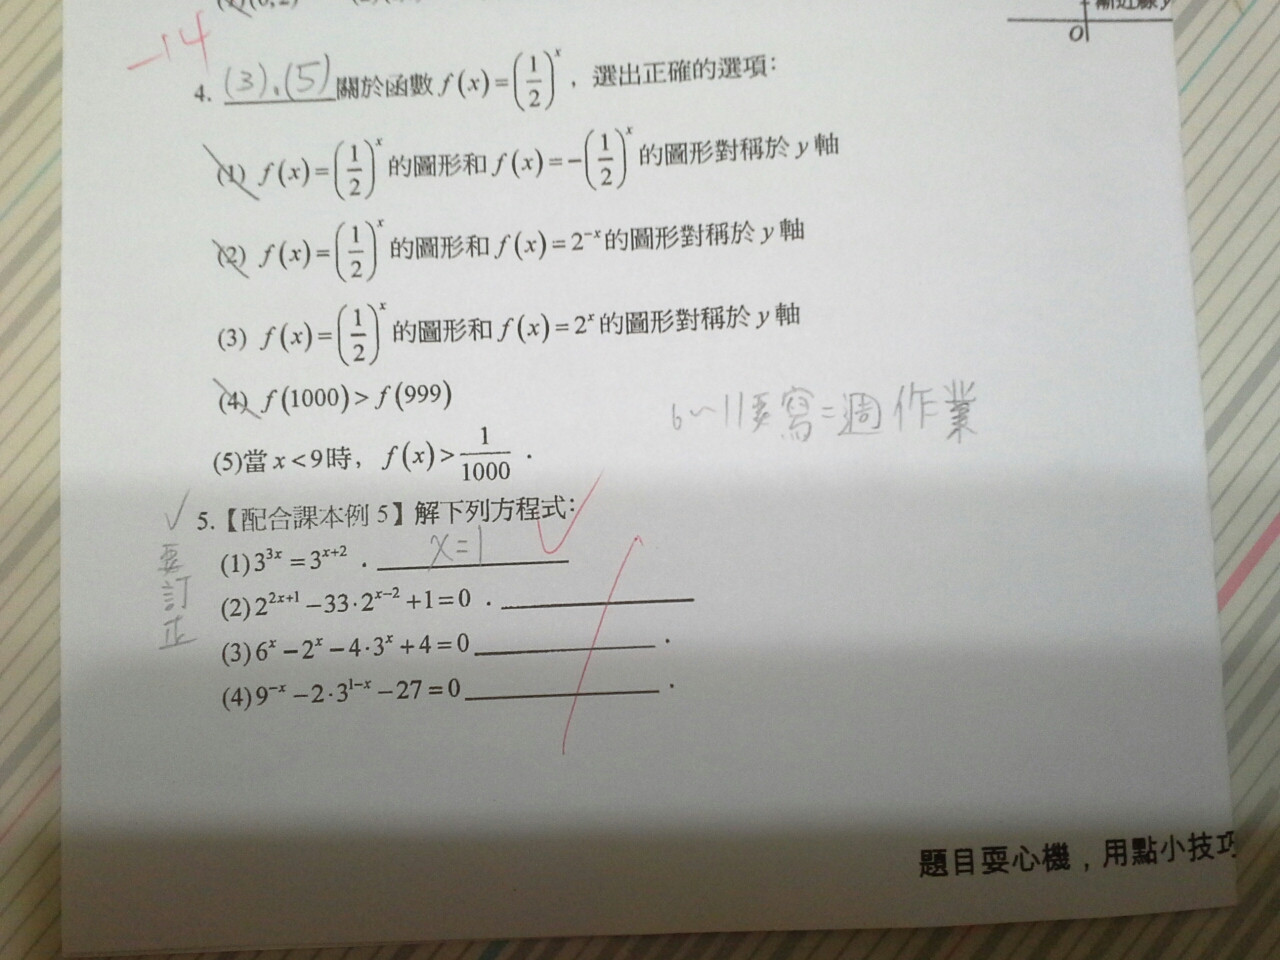 漸近線 y
O
-14
4. (3).(5) 關於函數 f(x)=(1/2)^x，選出正確的選項：
(1) f(x)=(1/2)^x 的圖形和 f(x)=-(1/2)^x 的圖形對稱於 y 軸
(2) f(x)=(1/2)^x 的圖形和 f(x)=2^{-x} 的圖形對稱於 y 軸
(3) f(x)=(1/2)^x 的圖形和 f(x)=2^x 的圖形對稱於 y 軸
(4) f(1000)>f(999)
6~11要寫=週作業
(5)當 x<9時，f(x)>1/1000．
5.【配合課本例 5】解下列方程式：
要訂正
(1)3^{3x}=3^{x+2}．x=1
(2)2^{2x+1}-33·2^{x-2}+1=0．
(3)6^x-2^x-4·3^x+4=0．
(4)9^{-x}-2·3^{1-x}-27=0．
題目耍心機，用點小技巧